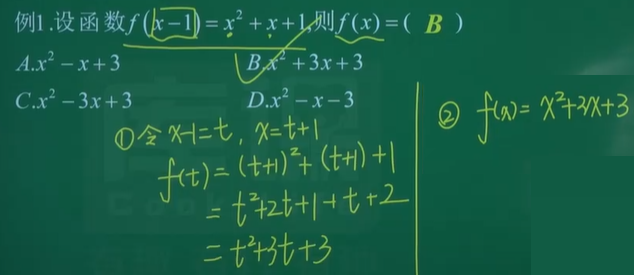 例1.设函数f(x-1)=x²+x+1,则f(x)=( B )
A.x²-x+3
B.x²+3x+3
C.x²-3x+3
D.x²-x-3
①令x-1=t, x=t+1
f(t)=(t+1)²+(t+1)+1
=t²+2t+1+t+2
=t²+3t+3
② f(x)=x²+3x+3